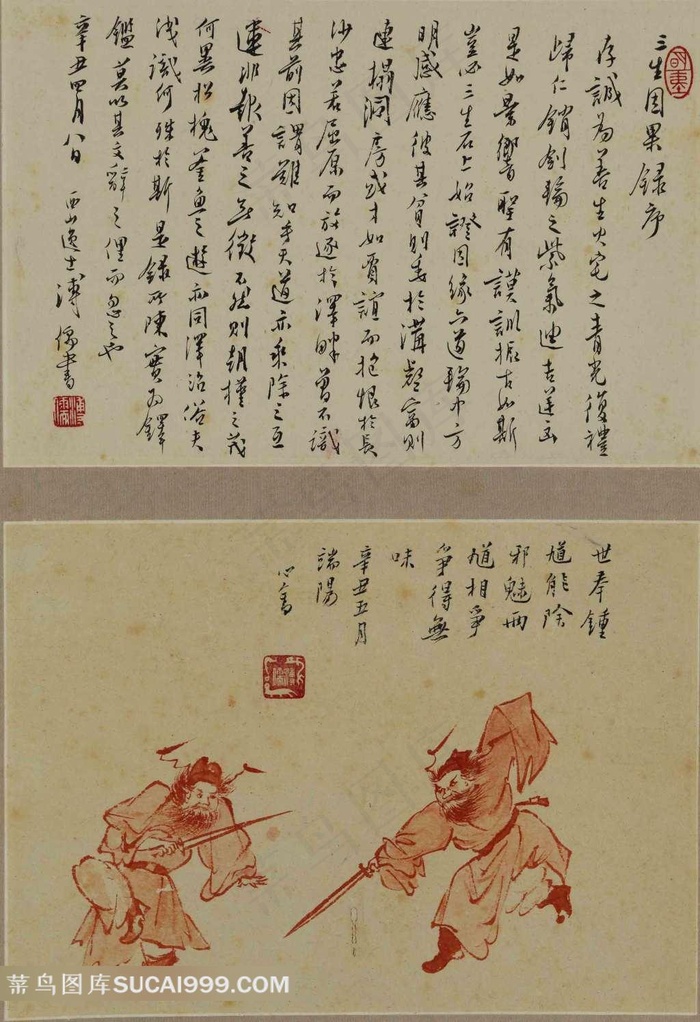 三生因果錄序
存誠為善生火宅之青光復禮
歸仁銷劍輪之紫氣迪吉逆凶
是如景響聖有謨訓振古如斯
豈必三生石上始證因緣六道輪中方
明感應彼其貧則委於溝壑富則
連攝洞房或才如賈誼而抱恨於長
沙忠若屈原而放逐於澤畔曾不識
其前因謂難知乎天道亦乘除之互
連非報善之無徵不然則朝槿之茂
何異松槐釜魚之遊亦同澤洽俗夫
淺識何殊於斯是錄所陳實為鐸
鑑莫以其文辭之俚而忽之也
辛丑四月八日 西山逸士溥儒書
溥儒
世奉鍾
馗能除
邪魅兩
馗相爭
爭得無
味
辛丑五月
端陽
心畬
菜鸟图库SUCAI999.COM